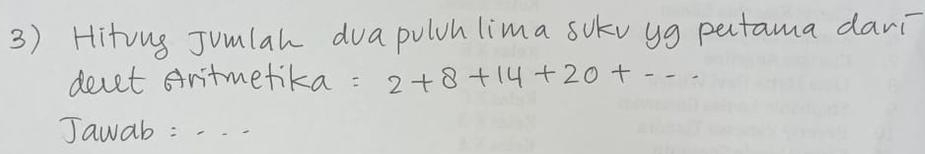 3) Hitung Jumlah dua puluh lima suku yg pertama dari
deret Aritmetika : 2 + 8 + 14 + 20 + - - -
Jawab : - - -